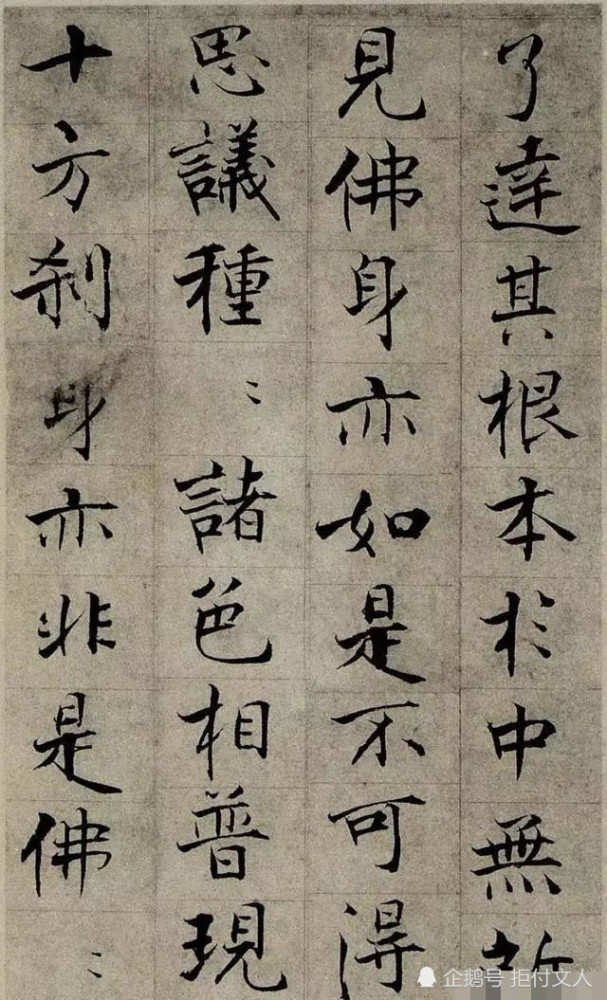 了達其根本於中無所
見佛身亦如是不可得
思議種〻諸色相普現
十方刹身亦非是佛〻
企鹅号 拒付文人